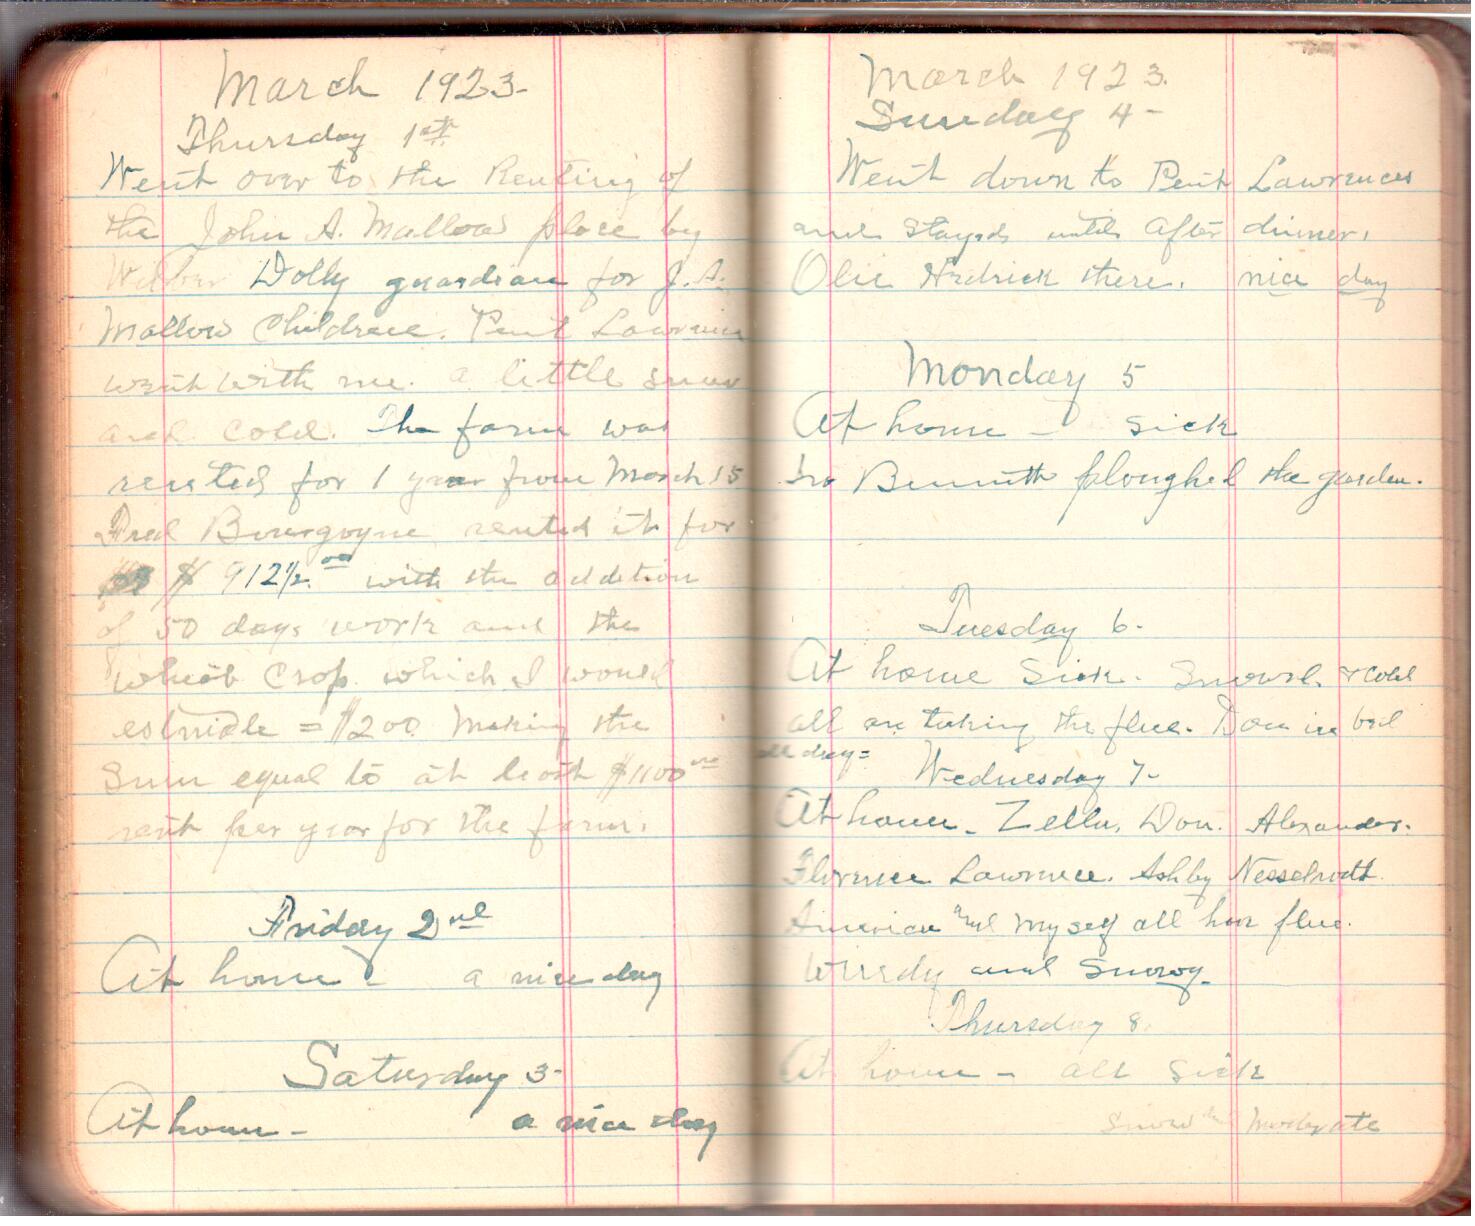 March 1923-
Thursday 1st
Went over to the Renting of
the John A. Mallow place by
Wilber Dolly guardian for J. A.
Mallow Children. Pent Lawrence
went with me. a little snow
and cold. The farm was
rented for 1 year from March 15
Fred Bourgoyne rented it for
$ 912½ 00 with the addition
of 50 days work and the
wheat crop. which I would
estimate = $200 Making the
sum equal to at least $1100 00
rent per year for the farm.
Friday 2nd
At home a nice day
Saturday 3-
At home - a nice day
March 1923.
Sunday 4-
Went down to Pent Lawrences
and stayed until after dinner.
Olie Hedrick there. nice day
Monday 5
At home - sick
Ira Bennett ploughed the garden.
Tuesday 6.
At home Sick. Snowed. & cold
all are taking the flue. Don in bed
all day=
Wednesday 7-
At home. Zella, Don. Alexander.
Florence Lawrence. Ashby Nesselrodt.
America and myself all have flue.
Windy and Snowy.
Thursday 8.
At home - all sick
Snow and Moderate